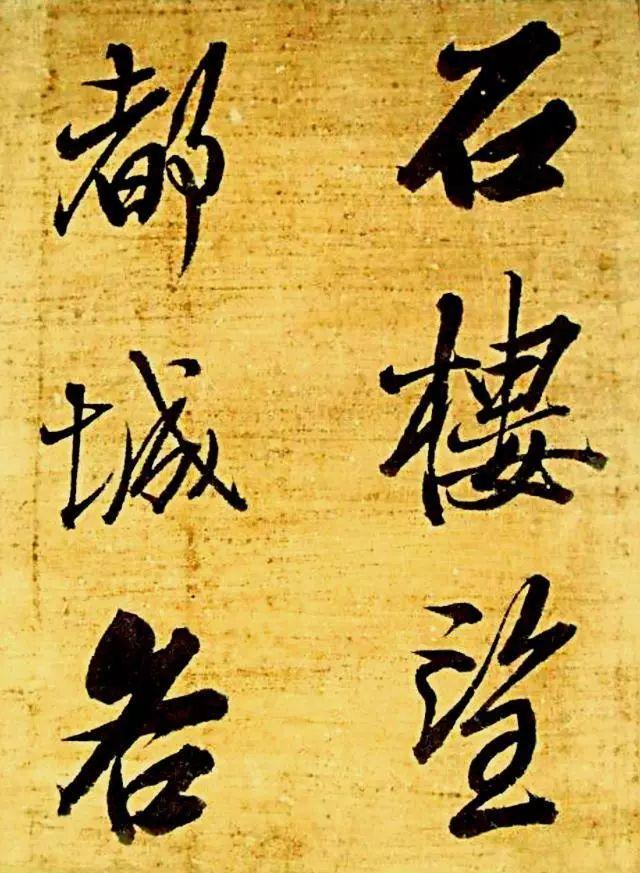 石樓望
都城若